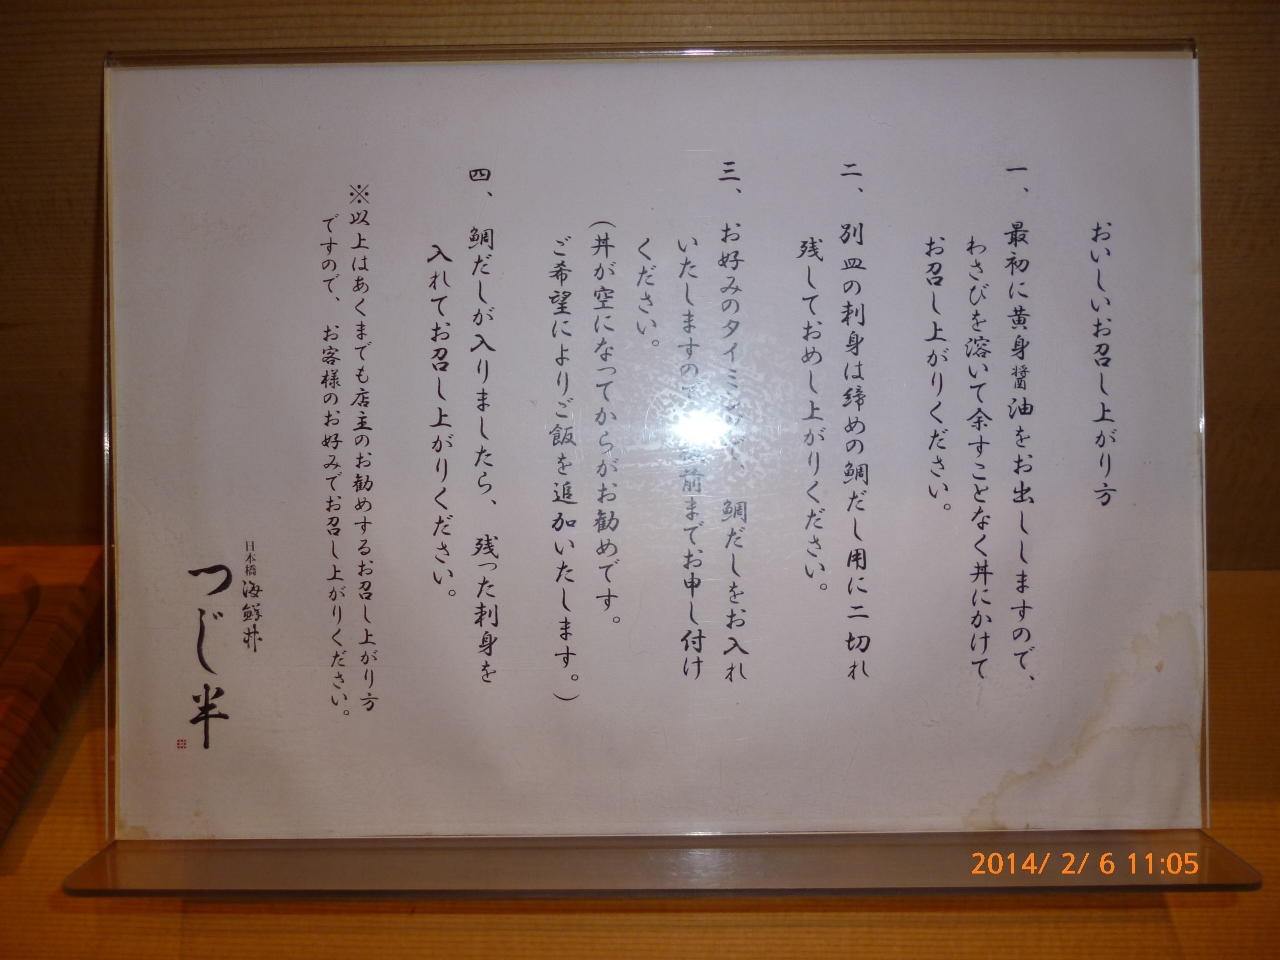 おいしいお召し上がり方
一、最初に黄身醤油をお出ししますので、
わさびを溶いて余すことなく丼にかけて
お召し上がりください。
二、別皿の刺身は締めの鯛だし用に二切れ
残しておめし上がりください。
三、お好みのタイミングで、鯛だしをお入れ
いたしますので 前までお申し付け
ください。
(丼が空になってからがお勧めです。
ご希望によりご飯を追加いたします。)
四、鯛だしが入りましたら、残った刺身を
入れてお召し上がりください。
※以上はあくまでも店主のお勧めするお召し上がり方
ですので、お客様のお好みでお召し上がりください。
日本橋 海鮮丼
つじ半
2014/ 2/ 6 11:05